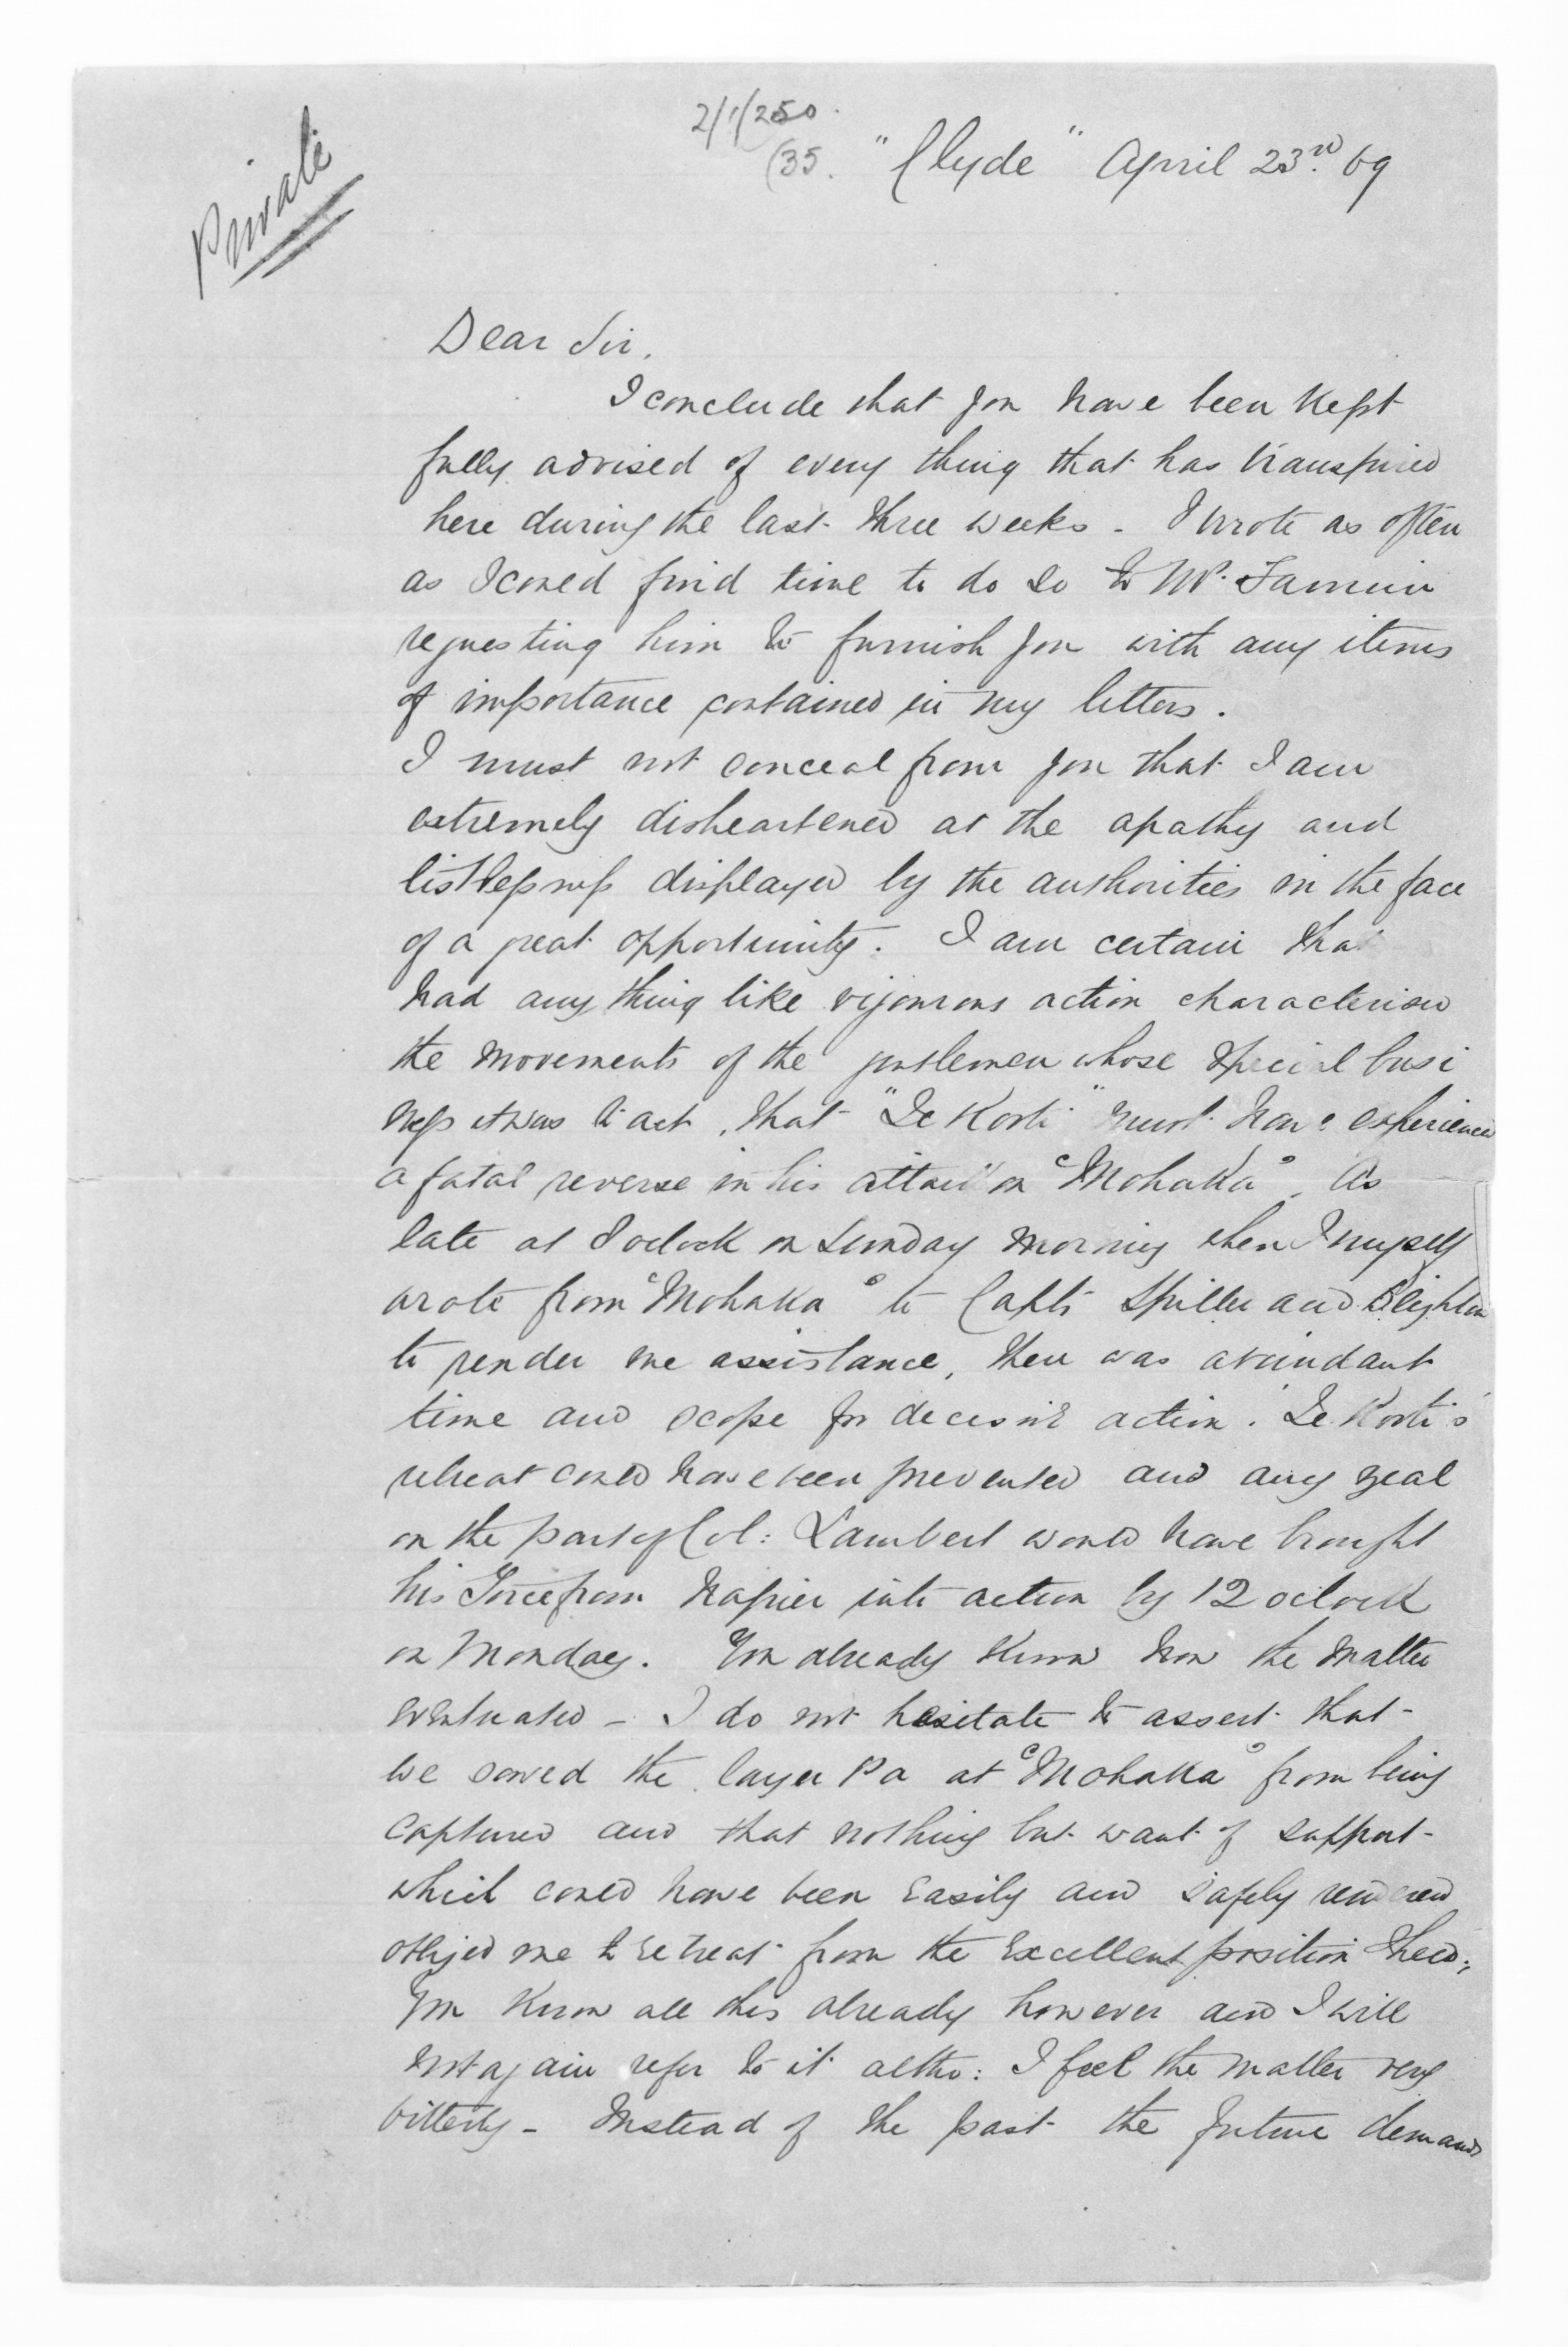 2/1/250.
(35.
"Clyde" April 23rd. 69
Private
Dear Sir,
I conclude that you have been kept
fully advised of every thing that has transpired
here during the last three weeks - I wrote as often
as I could find time to do so to Mr.
requesting him to furnish you with any items
of importance contained in my letters.
I must not conceal from you that I am
extremely disheartened at the apathy and
listlessness displayed by the authorities in the face
of a great opportunity. I am certain that
had any thing like vigourous action characterised
the movements of the gentlemen whose special busi
ness it was to act, that "Te Kooti" must have experienced
a fatal reverse in his attack on "Mohaka". As
late as 8 oclock on Sunday morning when I myself
wrote from "Mohaka" to Capts Spiller and
to render me assistance, there was abundant
time and scope for decisive action. Te Kooti's
retreat could have been prevented and any zeal
on the part of Col: Lambert would have brought
his Force from Napier into action by 12 oclock
on Monday. You already know how the matter
eventuated - I do not hesitate to assert that
we saved the larger Pa at "Mohaka" from being
captured and that nothing but want of support
which could have been easily and safely rendered
obliged me to retreat from the excellent position I held;
You know all this already however and I will
not again refer to it altho: I feel the matter very
bitterly - Instead of the past the future demands